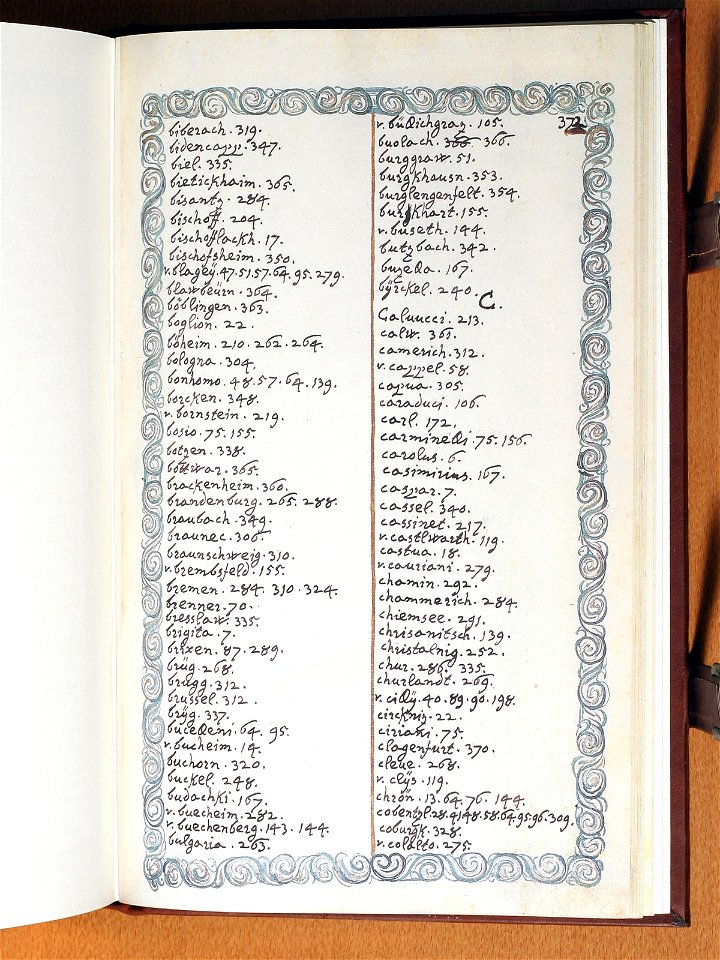 biberach . 319.
bidencapp . 347.
biel . 335.
bietickhaim . 365.
bisantz . 284.
bischoff . 204.
bischofflackh . 17.
bischofsheim . 350.
v. blageÿ . 47. 51. 57. 64. 95. 279.
blawbeürn . 364.
böblingen . 363.
boglion . 22 .
böheim . 210 . 262 . 264.
bologna . 304.
bonhomo . 48. 57. 64. 139.
borcken . 348.
v. bornstein . 219.
bosio . 75. 155.
botzen . 338.
bottwar . 365.
brackenheim . 360.
brandenburg . 265. 288.
braubach . 349.
braunec . 306.
braunschweig . 310.
v. brembsfeld . 155.
bremen . 284. 310. 324.
brenner . 70.
bresslaw . 335.
brigita . 7.
brixen . 87. 289.
brüg . 268.
brugg . 312.
brussel . 312 .
brÿg . 337.
bucedeni . 64. 95.
v. bucheim . 14.
buchorn . 320.
buckel . 248.
budachki . 167.
v. buecheim . 282.
v. buechenberg . 143. 144.
bulgaria . 263.
372
v. büdichgraz . 105.
buolach . 366.
burggraw . 51.
burgkhausn . 353.
burglengenfelt . 354.
burgkhart . 155.
v. buseth . 144.
butzbach . 342.
buzeda . 167.
bÿrckel . 240.
C.
Caluucci . 213.
calw . 361.
camerich . 312.
v. cappel . 58.
capua . 305.
caraduci . 106.
carl . 172.
carminedi . 75. 156.
carolus . 6.
casimirius . 167.
caspar . 7.
cassel . 340.
cassinet . 217.
v. castlwarth . 119.
castua . 18.
v. cauriani . 279.
chamin . 292.
chammerich . 284.
chiemsee . 291.
chrisanitsch . 139.
christalnig . 252.
chur . 286. 335.
churlandt . 269.
v. cidÿ . 40. 89. 90. 198.
circkniz . 22 .
ciriani . 75.
clagenfurt . 370.
cleue . 268.
v. clÿs . 119.
chrön . 13. 64. 76. 144.
cobentzl . 28. 41. 48. 58. 64. 95. 96. 309.
coburgk . 328.
v. colalto . 275.